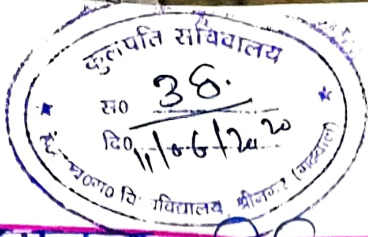 कुलपति सचिवालय
स0 38.
दि0 11/06/2020
हे० न०ब०ग० वि विद्यालय श्रीनगर (गढ़वाल)